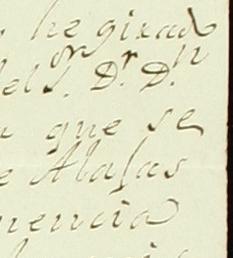 he girad
del S.or D.r D.n
que se
e Alajas
nencia